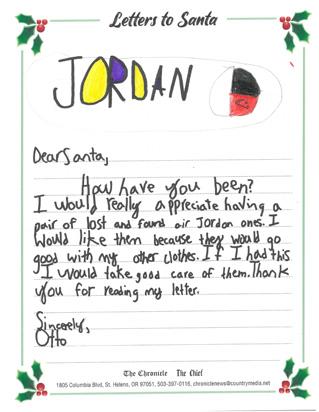 Letters to Santa
JORDAN
Dear Santa,
How have you been?
I would really appreciate having a
pair of lost and found air Jordan ones. I
would like them because they would go
good with my other clothes. If I had this
I would take good care of them. Thank
you for reading my letter.
Sincerely,
Otto
The Chronicle The Chief
1805 Columbia Blvd, St. Helens, OR 97051, 503-397-0116, chroniclenews@countrymedia.net